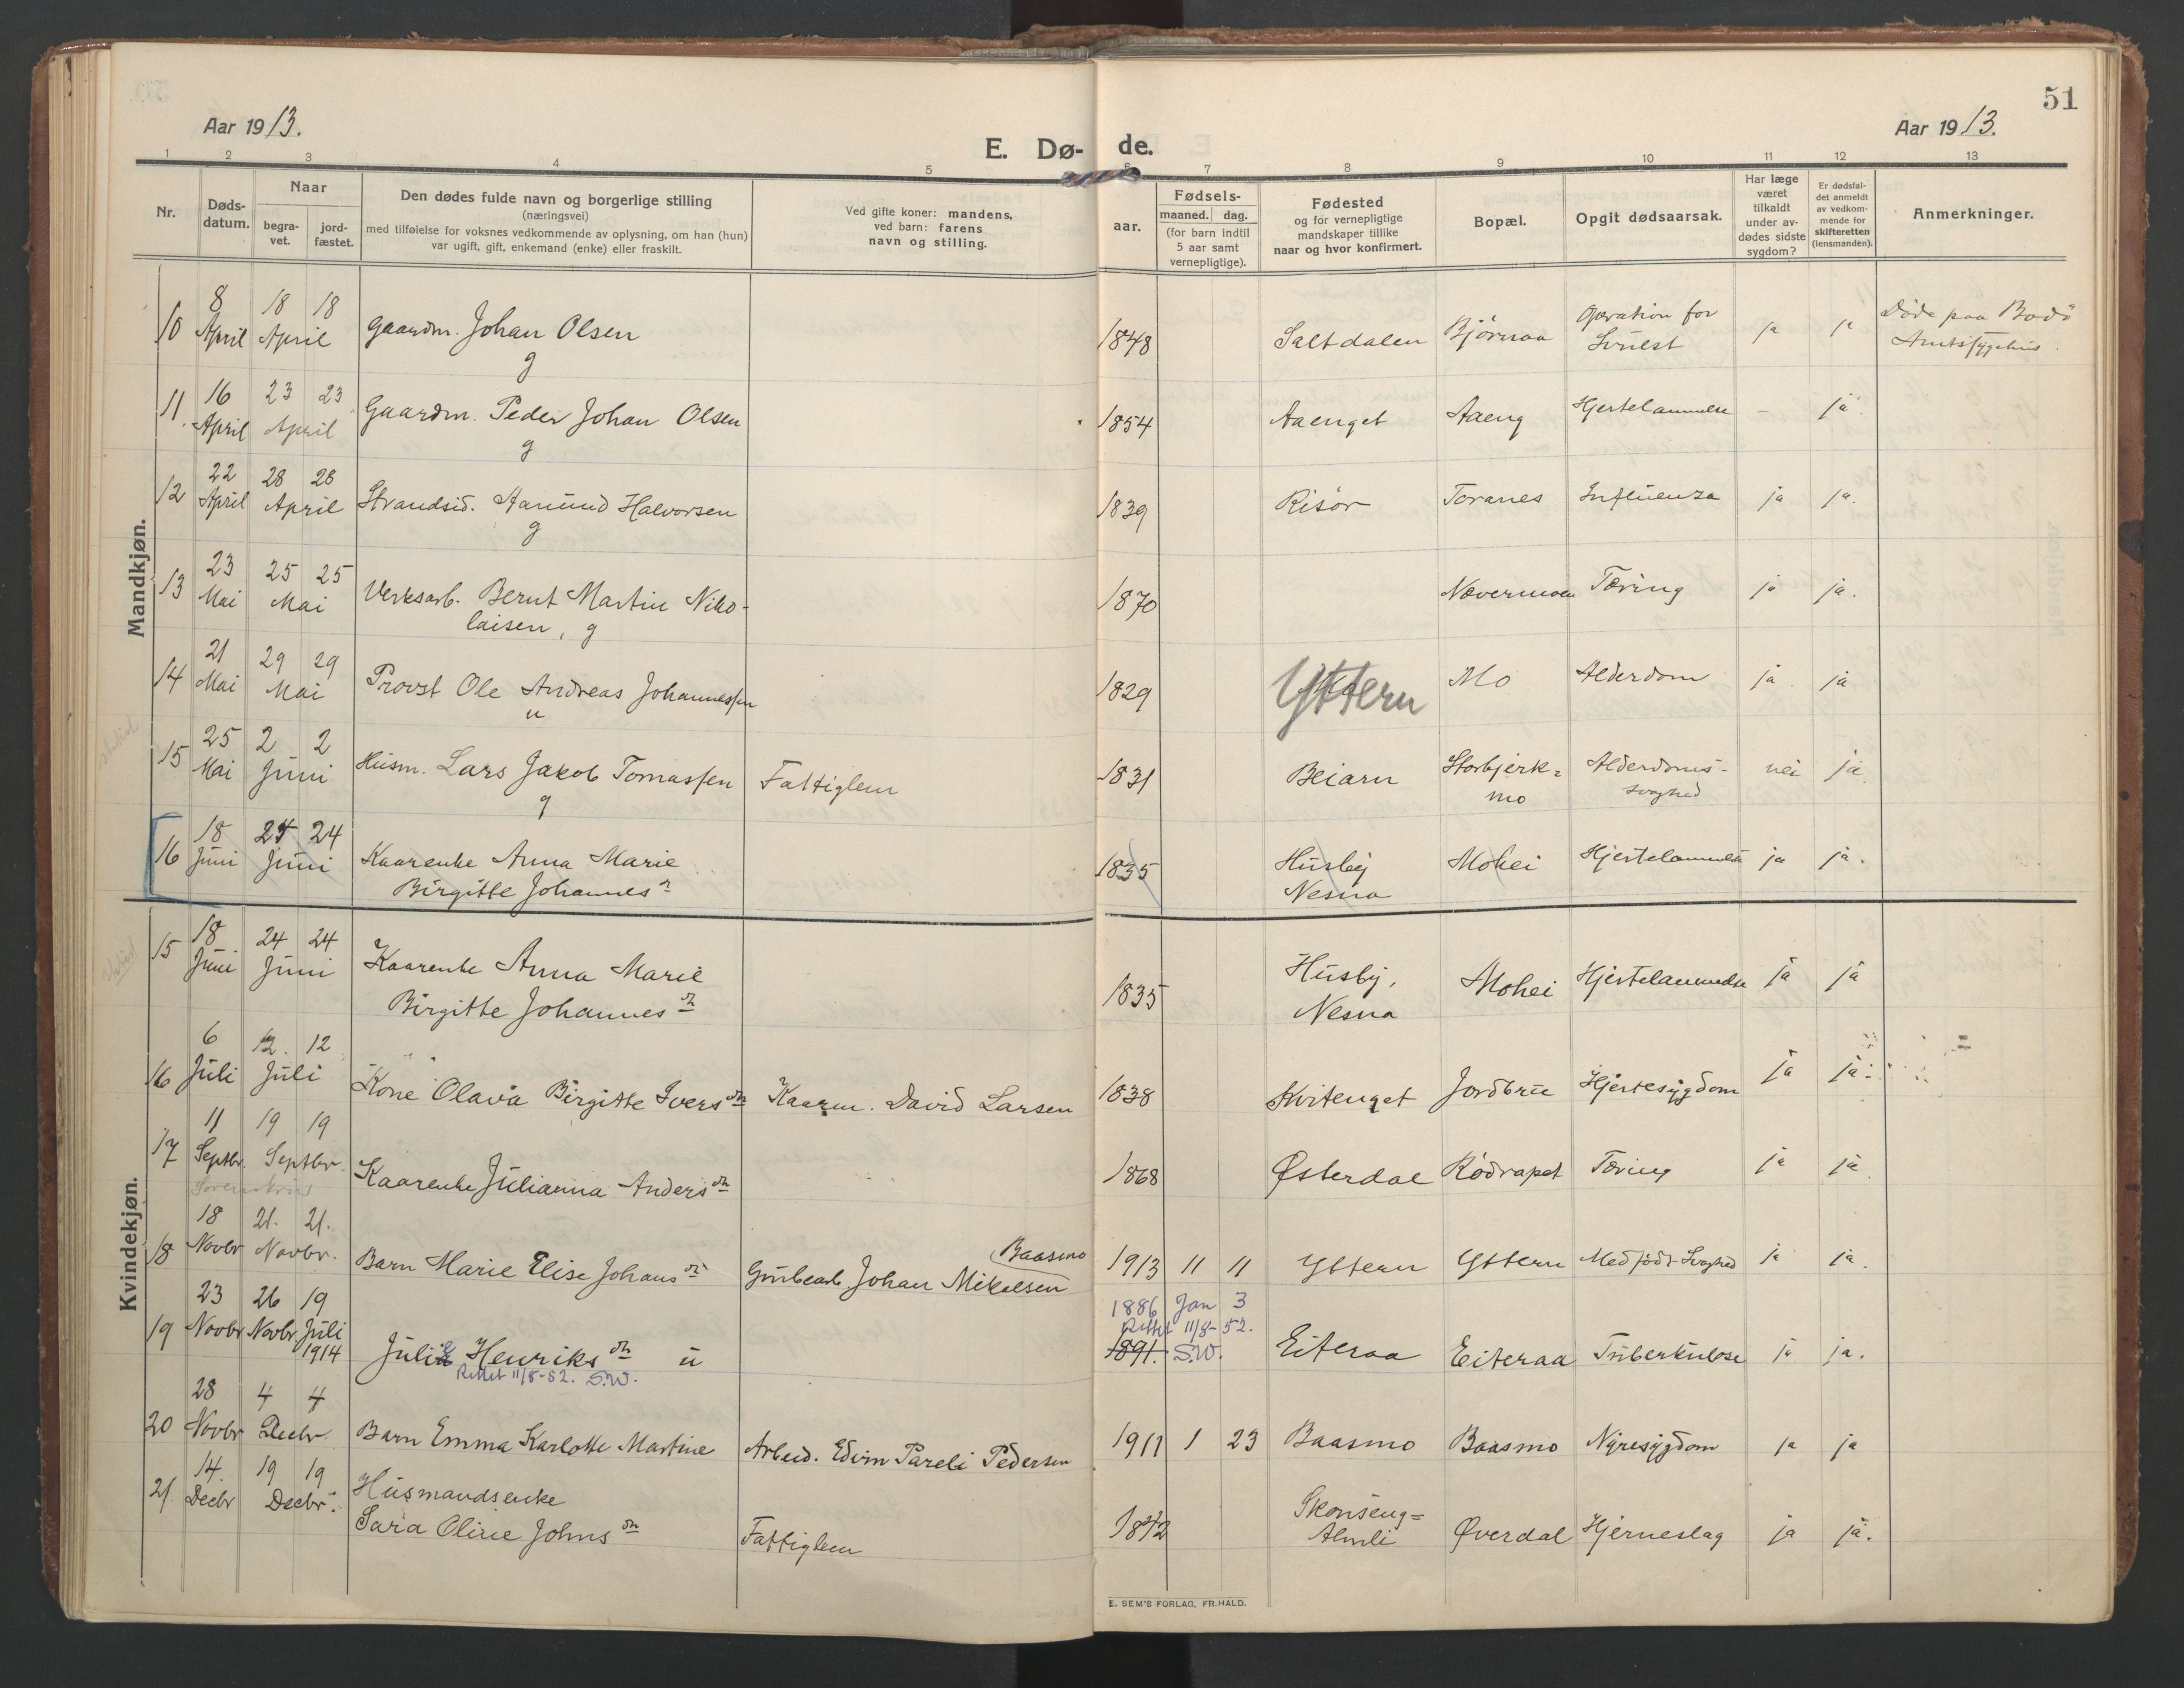 51
Aar 1913.
Aar 1913.
E. Dø- de.
1 2 3 4 5 6 7 8 9 10 11 12 13
Nr.
Døds-datum.
Naar
begra-vet.
jord-fæstet.
Den dødes fulde navn og borgerlige stilling
(næringsvei)
med tilføielse for voksnes vedkommende av oplysning, om han (hun)
var ugift, gift, enkemand (enke) eller fraskilt.
Ved gifte koner: mandens,
ved barn: farens
navn og stilling.
aar.
Fødsels-
maaned. dag.
(for barn indtil
5 aar samt
vernepligtige).
Fødested
og for vernepligtige
mandskaper tillike
naar og hvor konfirmert.
Bopæl.
Opgit dødsaarsak.
Har læge
været
tilkaldt
under av-
dødes sidste
sygdom?
Er dødsfal-
det anmeldt
av vedkom-
mende for
skifteretten
(lensmanden).
Anmerkninger.
Mandkjøn.
10 8 April 18 18 April Gaardm. Johan Olsen g 1848 Saltdalen Bjørnaa Operation for ja ja Døde paa Bodø
Amtssygehus.
11. 16 April 23 23 April Gaardm. Peder Johan Olsen g 1854 Aaenget Aaeng Hjertelammelse - ja
12 22 April 28 28 April Strandsid. Aamund Halvorsen g 1839 Risør Toranes Influenza ja ja.
13 23 Mai 25 25 Mai Verksarb. Bernt Martin Niko-
laisen, g 1870 Nævermoen Tæring ja ja.
14 21 Mai 29 29 Mai Provst Ole Andreas Johannessen u 1829 Yttern Mo Alderdom ja ja
15 25 Mai 2 2 Juni Husm. Lars Jakob Tomassen g Fattiglem 1831 Beiarn Storbjerk=
mo Alderdoms-
svaghed nei ja
16 18 Juni 24 24 Juni Kaarenke Anna Marie
Birgitte Johannes dr 1835 Husby
Nesna Mohei Hjertelammelse ja ja.
Kvindekjøn.
15 18 Juni 24 24 Juni Kaarenke Anna Marie
Birgitte Johannes dr 1835 Husby,
Nesna Mohei Hjertelammelse ja ja
16 6 Juli 12. 12 Juli Kone Olava Birgitte Ivers dr Kaarm. David Larsen 1838 Hvitenget Jordbru Hjertesygdom ja ja.
17 11 Septbr. 19 19 Septbr. Kaarenke Julianna Anders dr 1868 Østerdal Rødrapet Tæring ja ja
18 18 Novbr 21. 21. Novbr. Barn Marie Elise Johans dr Baasmo
Grubearb. Johan Mikalsen 1913 11 11 Yttern Yttern Medfødt Svaghed ja ja.
19 23 Novbr 26 Novbr. 19 Juli
1914 Henriks dr u
Rettet 11/8-52. S.W.
1886 Jan 3
Rettet 11/8-52.
1891. S.W. Eiteraa Eiteraa Tuberkulose ja ja.
20 28 Novbr 4 4 Decbr. Barn Emma Karlotte Martine Arbeid. Edvin Pareli Pedersen 1911 1 23 Baasmo Baasmo Nyresygdom ja ja
21. 14. Decbr 19 19 Decbr. Husmandsenke
Sara Oline Johns dr Fattiglem 1842 Skonseng=
Almli Øverdal Hjerneslag ja ja.
E. SEM'S FORLAG, FR.HALD.